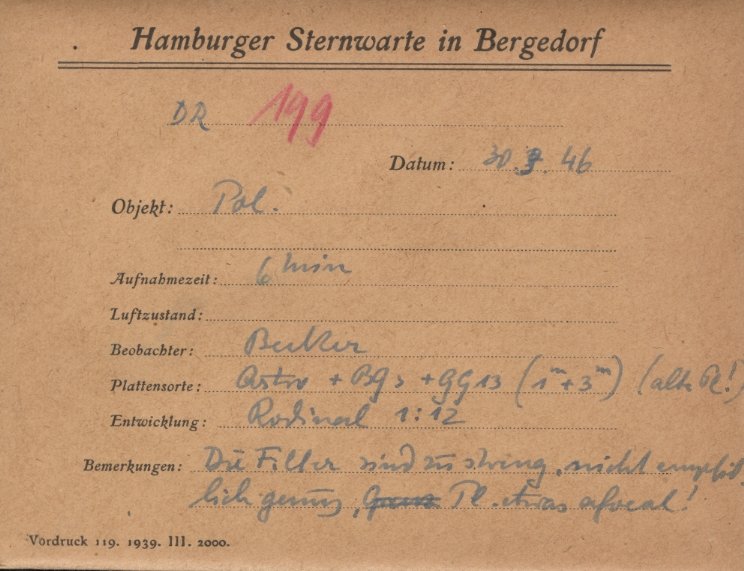 Hamburger Sternwarte in Bergedorf
DR 199
Datum: 30. 9. 46
Objekt: Pol.
Aufnahmezeit: 6 min
Luftzustand:
Beobachter: Becker
Plattensorte: Astro + BG 3 + GG 13 (1ᵐ + 3ᵐ) (alte Pl!)
Entwicklung: Rodinal 1:12
Bemerkungen: Die Filter sind zu streng, nicht empfind
lich genug, Pl. etwas afocal!
Vordruck 119. 1939. III. 2000.